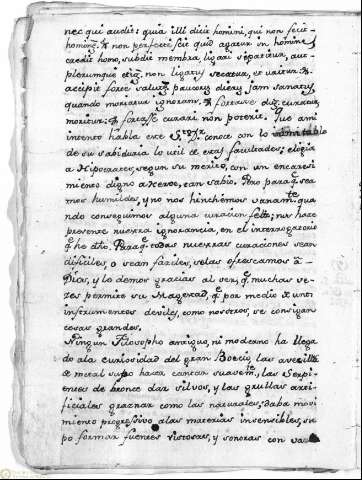 nec qui audit: quia illi dicit homini, qui non fecit
homine, et non perfecte scit quid agatur in homine
caedit homo, subdit membra, ligari
plerumque etiam, non ligatus secatur, et uritur. et
accipit forte salutem paucorum dierum jam sanatus,
quando moriatur ignorans, et fortasse dum curatur,
moritur: et fortasse curari non poterit. Que a mi
intento habla este conoce con lo admirable
de su sabiduria lo util de estas facultades; elogia
a Hipocrates, segun su merito, con un encareci
miento digno a Heroe, tan sabio. Pero para qe sea
mos humildes, y no nos hinchemos vanamte qua
ndo conseguimos alguna curacion feliz; nos hace
presente nuestra ignorancia, en el interrogatorio
qe he dho. Para qe todas nuestras curaciones sean
dificiles, o sean faciles, selas ofrescamos á
Dios, y lo demos gracias al ver, qe muchas ve-
zes permite su Magestad, qe por medio de unos
instrumentos deviles, como nosotros, se consigan
cosas grandes.
Ningun Filosopho antiguo, ni moderno ha llega
do ala curiosidad del gran Boecio, las avecilla
de metal supo hacer cantar suavemte, las Serpi
entes de bronce dar silvos, y las grullas arti-
ficiales graznar como las naturales; daba movi
miento progressivo alas materias insensibles, su
po formar fuentes vistosas, y sonoras con